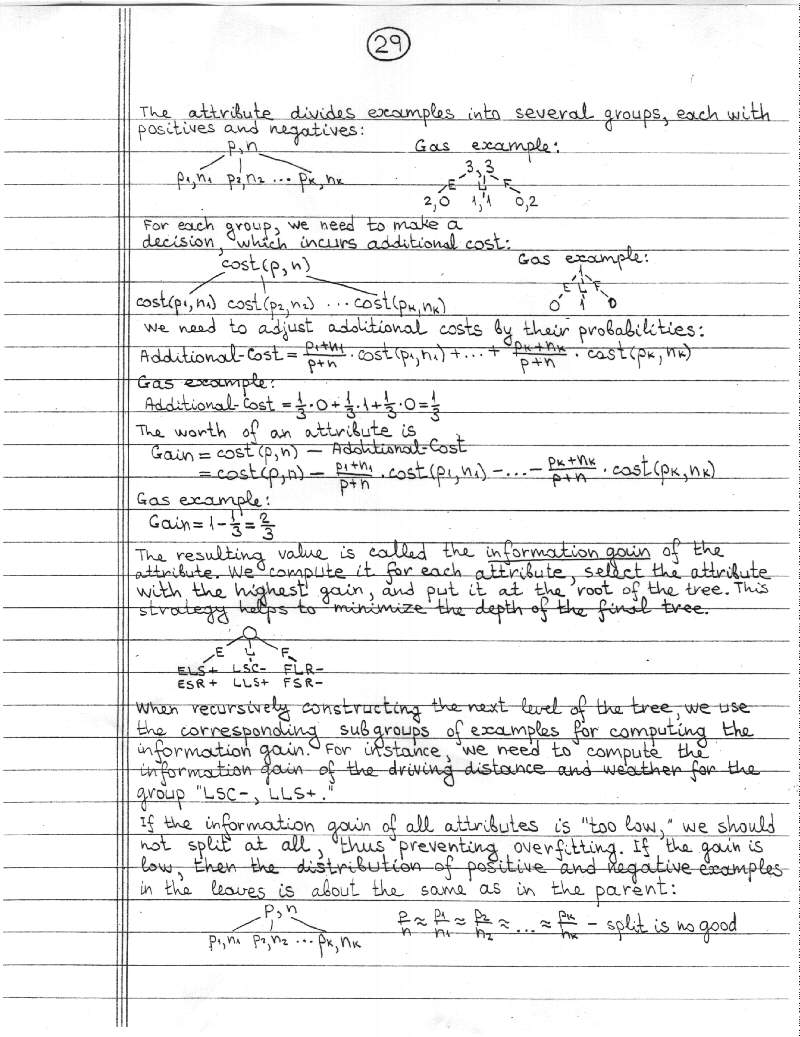 29
The attribute divides examples into several groups, each with
positives and negatives:
p,n
p₁,n₁ p₂,n₂ ... pₖ,nₖ
Gas example:
3,3
E L F
2,0 1,1 0,2
For each group, we need to make a
decision, which incurs additional cost:
cost(p,n)
cost(p₁,n₁) cost(p₂,n₂) ... cost(pₖ,nₖ)
Gas example:
1
E L F
0 1 0
We need to adjust additional costs by their probabilities:
Additional-Cost = (p₁+n₁)/(p+n) · cost(p₁,n₁) + ... + (pₖ+nₖ)/(p+n) · cost(pₖ,nₖ)
Gas example:
Additional-Cost = 1/3 · 0 + 1/3 · 1 + 1/3 · 0 = 1/3
The worth of an attribute is
Gain = cost(p,n) − Additional-Cost
= cost(p,n) − (p₁+n₁)/(p+n) · cost(p₁,n₁) − ... − (pₖ+nₖ)/(p+n) · cost(pₖ,nₖ)
Gas example:
Gain = 1 − 1/3 = 2/3
The resulting value is called the information gain of the
attribute. We compute it for each attribute, select the attribute
with the highest gain, and put it at the root of the tree. This
strategy helps to minimize the depth of the final tree.
E L F
ELS+ LSC- FLR-
ESR+ LLS+ FSR-
When recursively constructing the next level of the tree, we use
the corresponding subgroups of examples for computing the
information gain. For instance, we need to compute the
information gain of the driving distance and weather for the
group "LSC-, LLS+."
If the information gain of all attributes is "too low," we should
not split at all, thus preventing overfitting. If the gain is
low, then the distribution of positive and negative examples
in the leaves is about the same as in the parent:
p,n
p₁,n₁ p₂,n₂ ... pₖ,nₖ
p/n ≈ p₁/n₁ ≈ p₂/n₂ ≈ ... ≈ pₖ/nₖ – split is no good